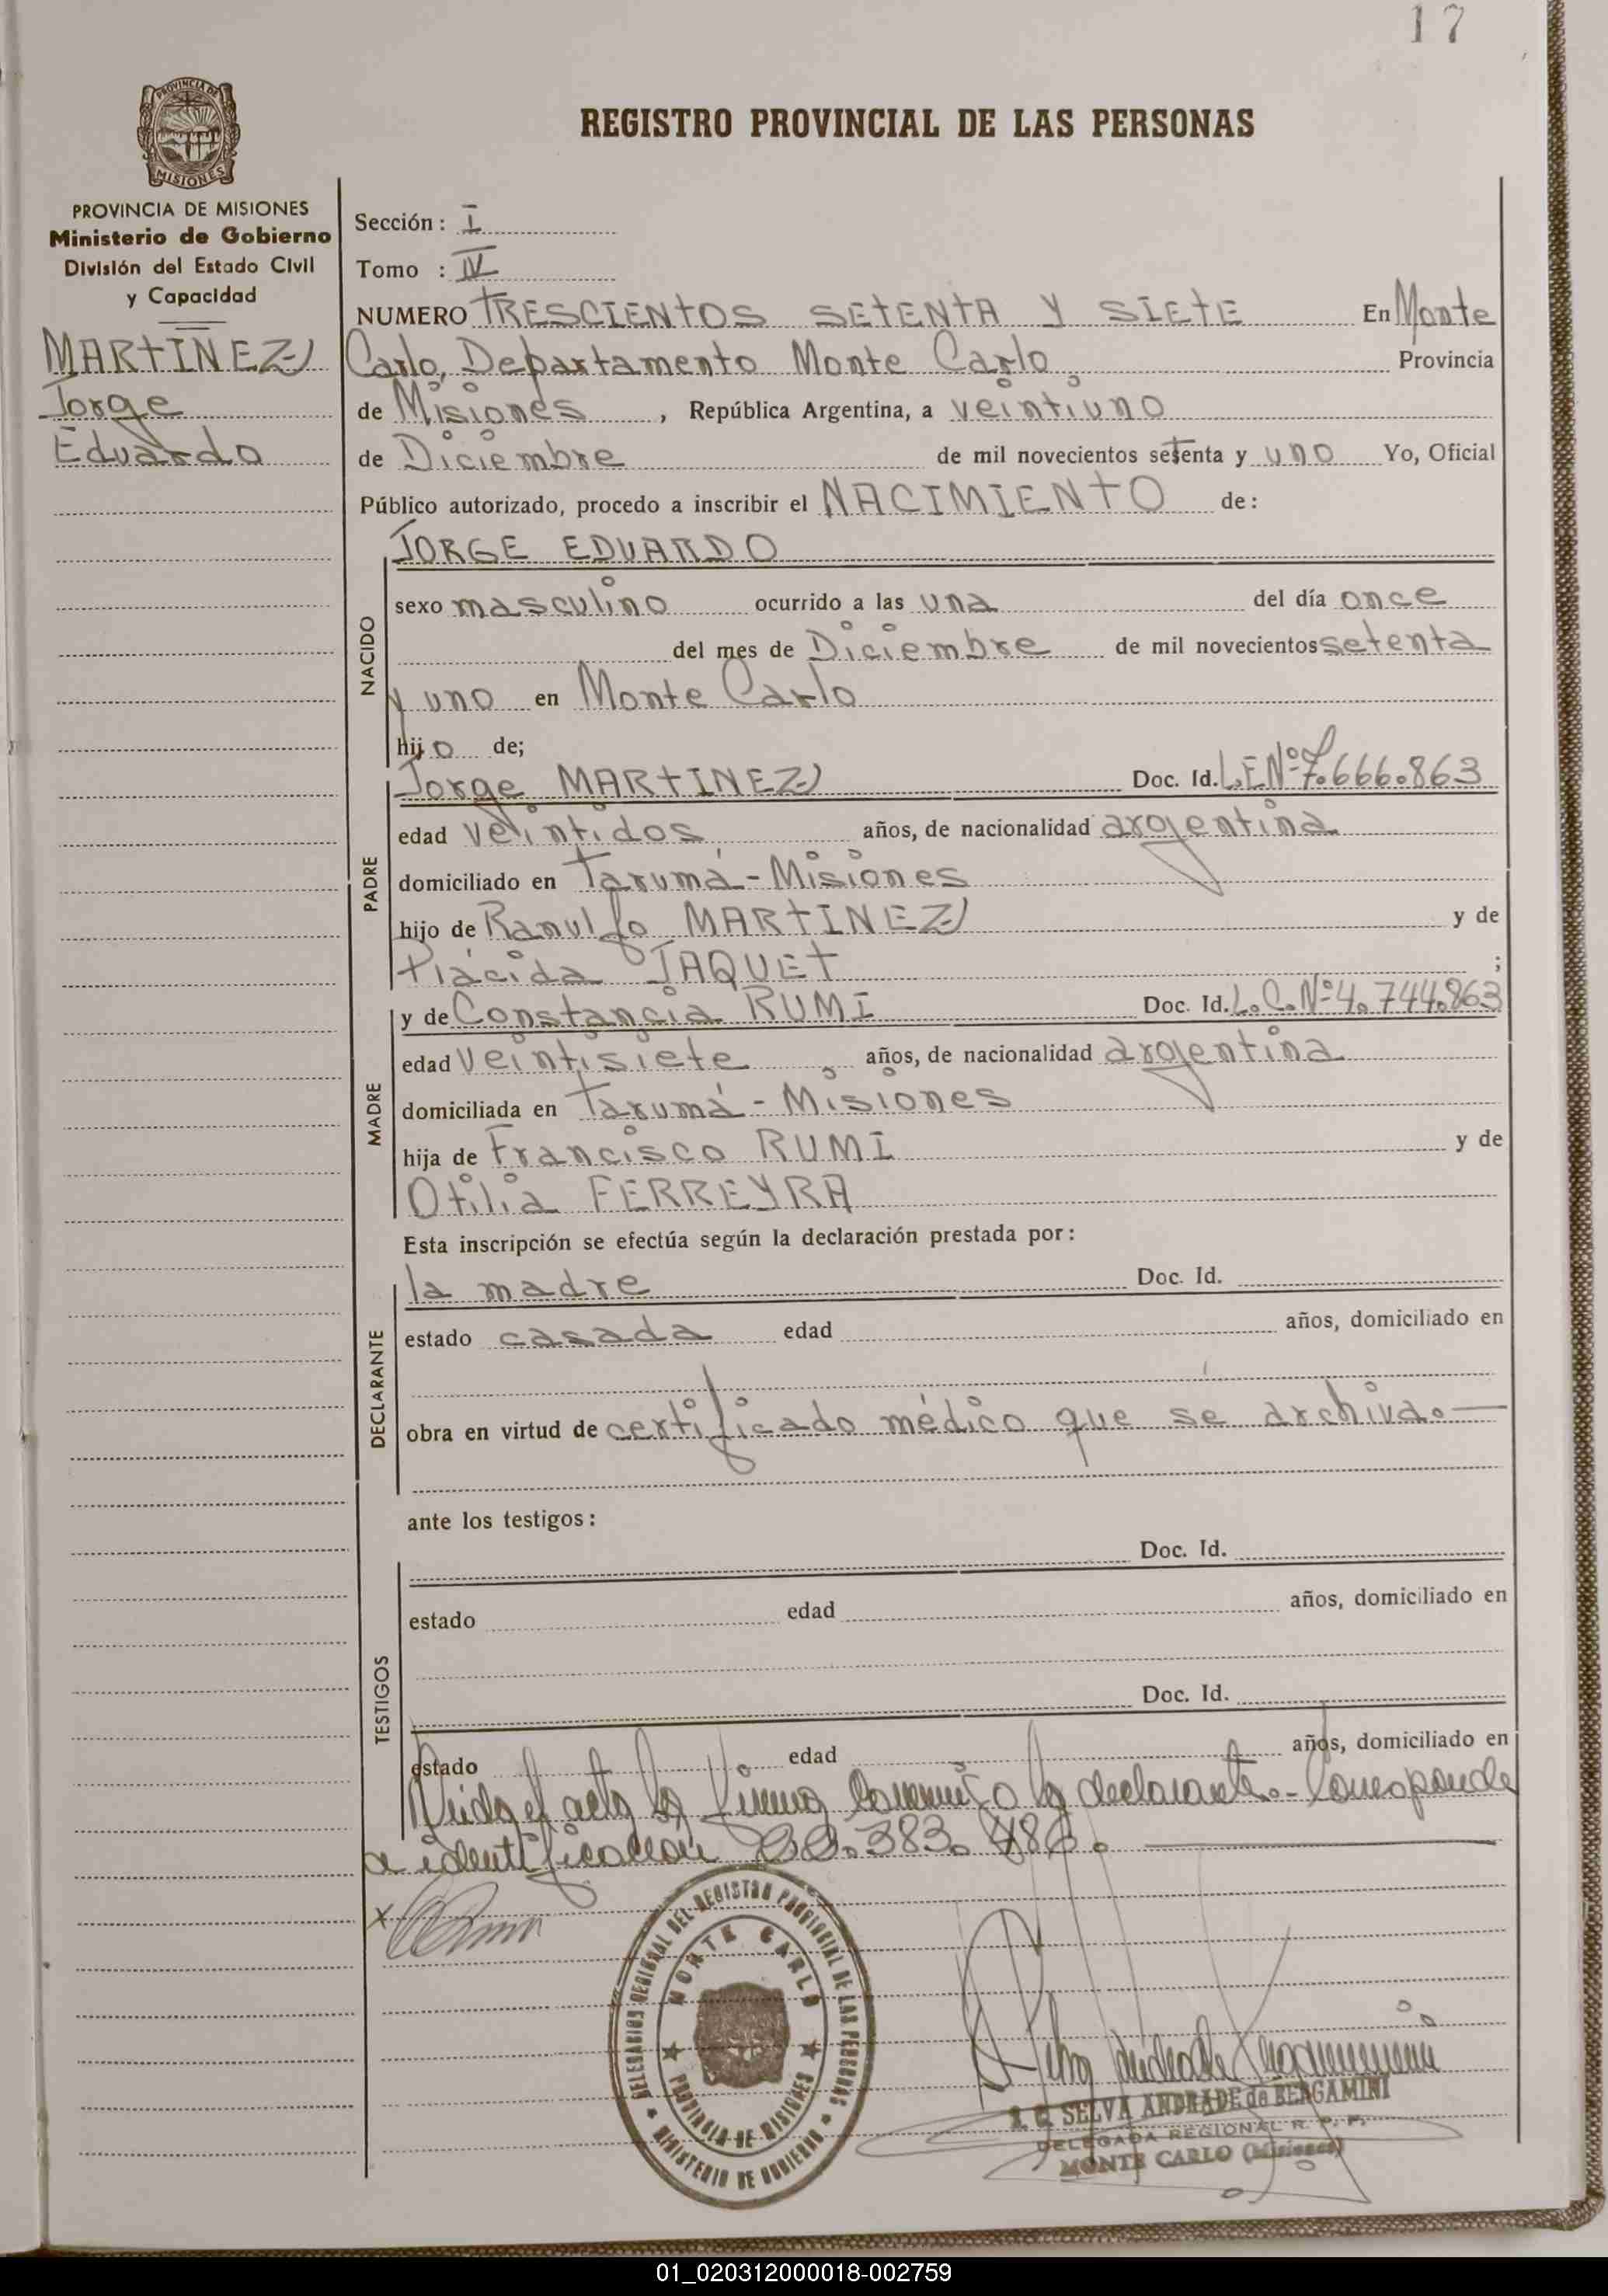 17
PROVINCIA DE
MISIONES
PROVINCIA DE MISIONES
Ministerio de Gobierno
División del Estado Civil
y Capacidad
MARTINEZ
Jorge
Eduardo
REGISTRO PROVINCIAL DE LAS PERSONAS
Sección: I
Tomo : IV
NUMERO TRESCIENTOS SETENTA Y SIETE En Monte
Carlo, Departamento Monte Carlo Provincia
de Misiones, República Argentina, a veintiuno
de Diciembre de mil novecientos setenta y uno Yo, Oficial
Público autorizado, procedo a inscribir el NACIMIENTO de:
JORGE EDUARDO
NACIDO
sexo masculino ocurrido a las una del día once
del mes de Diciembre de mil novecientos setenta
y uno en Monte Carlo
hijo de;
PADRE
Jorge MARTINEZ Doc. Id. L.E.Nº 7.666.863
edad veintidos años, de nacionalidad argentina
domiciliado en Tarumá - Misiones
hijo de Ranulfo MARTINEZ y de
Plácida JAQUET ;
MADRE
y de Constancia RUMI Doc. Id. L.C.Nº 4.744.863
edad veintisiete años, de nacionalidad argentina
domiciliada en Tarumá - Misiones
hija de Francisco RUMI y de
Otilia FERREYRA
Esta inscripción se efectúa según la declaración prestada por:
DECLARANTE
la madre Doc. Id.
estado casada edad años, domiciliado en
obra en virtud de certificado médico que sé archiva.—
ante los testigos:
TESTIGOS
Doc. Id.
estado edad años, domiciliado en
Doc. Id.
estado edad años, domiciliado en
Leida el acta la firma conmigo la declarante.- Corresponde
a identificación 22.383.486.
x
DELEGACION REGIONAL DEL REGISTRO PROVINCIAL DE LAS PERSONAS
MONTE CARLO
PROVINCIA DE MISIONES
MINISTERIO DE GOBIERNO
SELVA ANDRADE de BERGAMINI
DELEGADA REGIONAL R. P. P.
MONTE CARLO (Misiones)
01_020312000018-002759